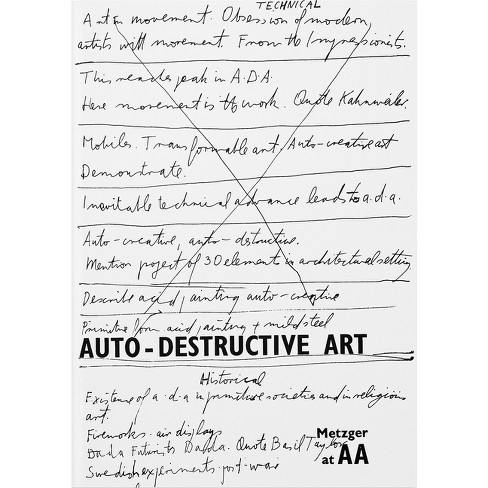 TECHNICAL
Art in movement. Obsession of modern
artists with movement. From the Impressionists.
This reaches peak in A.D.A.
Here movement is the work. Quote Kahnweiler.
Mobiles. Transformable art. Auto-creative art
Demonstrate.
Inevitable technical advance leads to a.d.a.
Auto-creative, auto-destructive.
Mention project of 30 element in architectural setting
Describe acid painting auto-creative
Primitive form acid painting + mild steel
AUTO-DESTRUCTIVE ART
Historical
Existence of a.d.a in primitive societies and in religious
art.
Fireworks. air displays
Dada Futurists Dada. Quote Basil Taylor
Swedish experiments post-war
Metzger
at AA